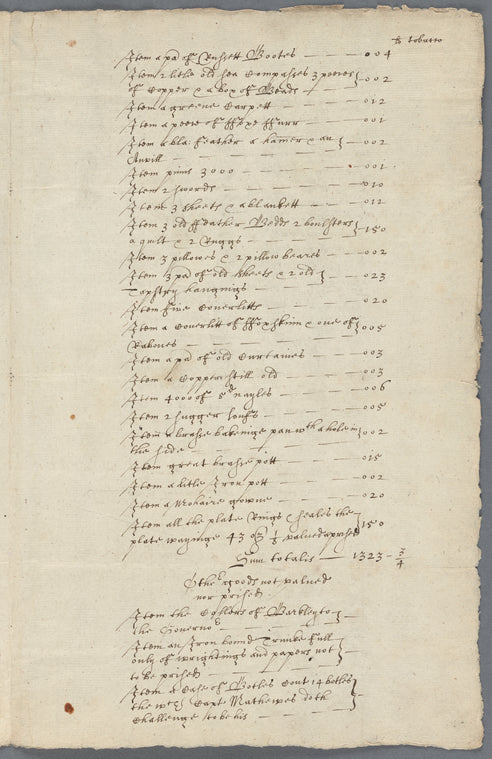 li tobacco
Item a pr of Russett Bootes — — — 004
Item 2 litle old sea Compasses 3 peeces
of Copper & a box of Beads — 002
Item a greene Carpett — — — 012
Item a peece of ffoxe ffurr — — — 001
Item a bla: feather a hamer & an
Anvill — — — — — 002
Item pinns 3000 — — — 001
Item 2 swords — — — — 010
Item 3 sheets & a blankett — — 012
Item 3 old ffeather Bedds 2 boulsters
a quilt & 2 Ruggs — — — 150
Item 3 pillowes & 2 pillow beares — — 002
Item 3 pr of old sheets & 2 old
Tapstry hangings — 023
Item five Coverlitts — — — 020
Item a Coverlitt of ffoxskinn & one of
Racones — — — — 005
Item a pr of old Curtaines — — 003
Item a Copper still old — — 003
Item 4000 of 5d nayles — — — 006
Item 2 sugger loafs — — — 005
Item a brasse bakeinge pan wth a hole in
the side — — — 002
Item great brasse pott — — — 015
Item a litle Iron pott — — — 002
Item a Mohaire gowne — — — 020
Item all the plate Rings & seales the
plate wayinge 43 oz 1/2 valued & prised 150
Sum totalis — 1323 - 3/4
Other goods not valued
nor prised
Item the of
the Governor
Item an Iron bound Trunke full
only of wrightings and papers not
to be prised
Item a Case of Botles Cont 14 botles
the wch Capt Mathewes doth
Challenge to be his — —